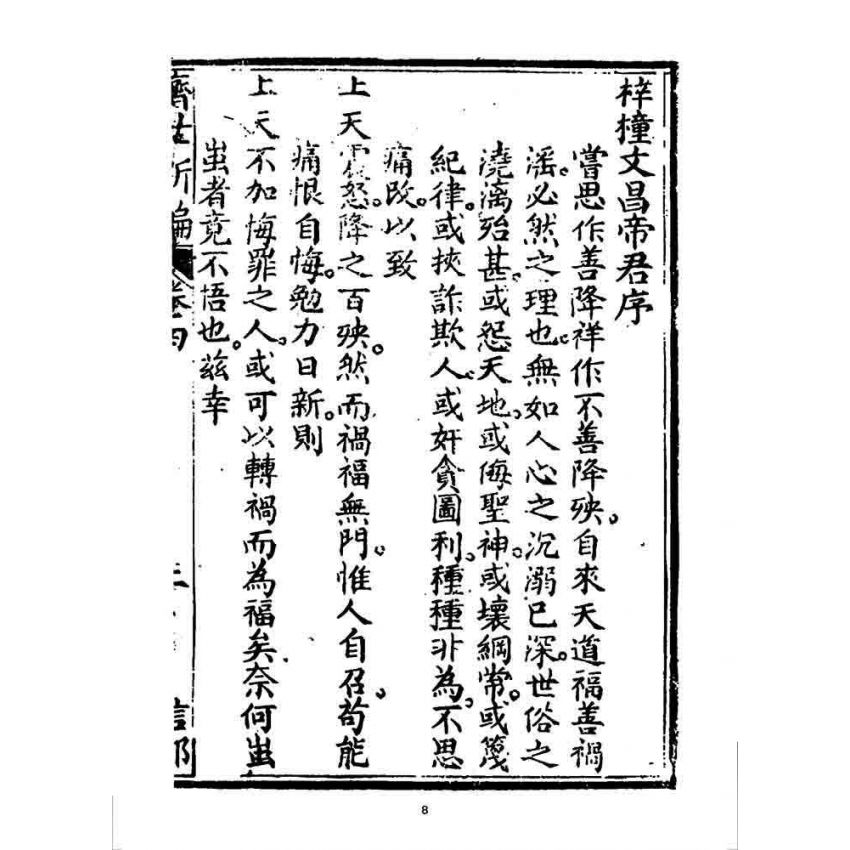 梓撞文昌帝君序
嘗思作善降祥作不善降殃。自來天道福善禍
滛。必然之理也。無如人心之沉溺已深。世俗之
澆漓殆甚。或怨天地。或侮聖神。或壞綱常。或篾
紀律。或挾詐欺人。或奸貪圖利。種種非為。不思
痛改。以致
上天震怒。降之百殃。然而禍福無門。惟人自召。苟能
痛恨自悔。勉力日新。則
上天不加悔罪之人。或可以轉禍而為福矣。奈何蚩
蚩者竟不悟也。茲幸
濟世新編 卷四 信部
8